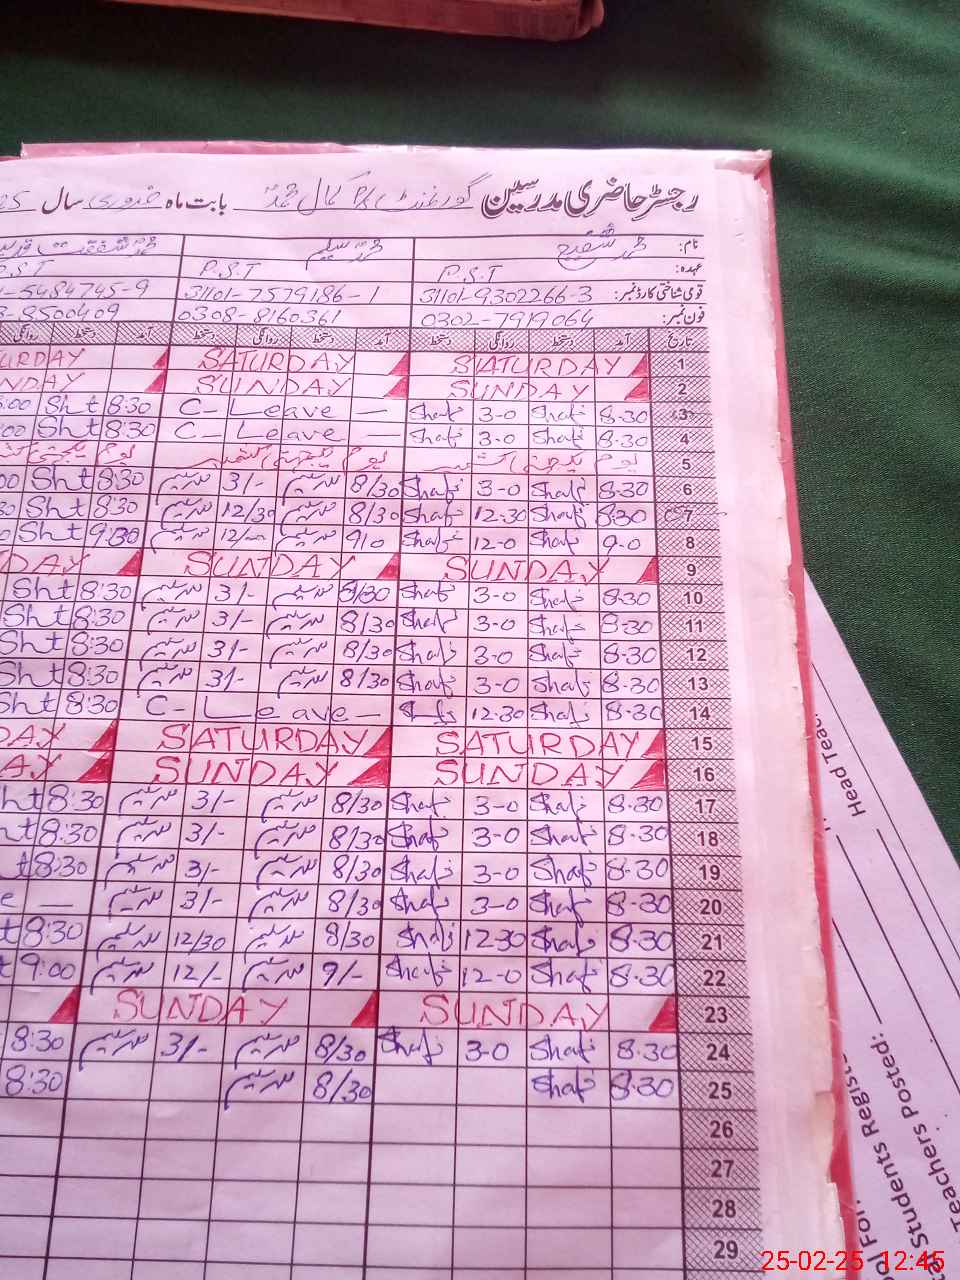 رجسٹر حاضری مدرسین گورنمنٹ کمال بابت ماہ فروری سال
نام: محمد شفیع محمد سلیم
عہدہ: P.S.T P.S.T
قومی شناختی کارڈ نمبر: 31101-9302266-3 31101-7579186-1 -5484745-9
فون نمبر: 0302-7919064 0308-8160361 -8500409
تاریخ آمد دستخط روانگی دستخط آمد دستخط روانگی دستخط آمد دستخط روانگی
1 SATURDAY SATURDAY URDAY
2 SUNDAY SUNDAY NDAY
3 8-30 Shafi 3-0 Shafi C-Leave — 8:30 Sht :00
4 8-30 Shafi 3-0 Shafi C-Leave — 8:30 Sht :00
5 یوم یکجہتی کشمیر یوم یکجہتی کشمیر یوم یکجہتی
6 8-30 Shafi 3-0 Shafi 8/30 سلیم 3/- سلیم 8:30 Sht 00
7 8:30 Shafi 12-30 Shafi 8/30 سلیم 12/30 سلیم 8:30 Sht 30
8 9-0 Shafi 12-0 Shafi 9/0 سلیم 12/- سلیم 9:30 Sht
9 SUNDAY SUNDAY DAY
10 8-30 Shafi 3-0 Shafi 8/30 سلیم 3/- سلیم 8:30 Sht
11 8-30 Shafi 3-0 Shafi 8/30 سلیم 3/- سلیم 8:30 Sht
12 8-30 Shafi 3-0 Shafi 8/30 سلیم 3/- سلیم 8:30 Sht
13 8-30 Shafi 3-0 Shafi 8/30 سلیم 3/- سلیم 8:30 Sht
14 8-30 Shafi 12-30 Shafi C-Leave — 8:30 Sht
15 SATURDAY SATURDAY DAY
16 SUNDAY SUNDAY AY
17 8-30 Shafi 3-0 Shafi 8/30 سلیم 3/- سلیم 8:30 ht
18 8-30 Shafi 3-0 Shafi 8/30 سلیم 3/- سلیم 8:30 ht
19 8-30 Shafi 3-0 Shafi 8/30 سلیم 3/- سلیم 8:30 t
20 8-30 Shafi 3-0 Shafi 8/30 سلیم 3/- سلیم — e
21 8-30 Shafi 12-30 Shafi 8/30 سلیم 12/30 سلیم 8:30 t
22 8-30 Shafi 12-0 Shafi 9/- سلیم 12/- سلیم 9:00 t
23 SUNDAY SUNDAY
24 8-30 Shafi 3-0 Shafi 8/30 سلیم 3/- سلیم 8:30
25 8-30 Shafi 8/30 سلیم 8:30
26
27
28
29
Head Teac
Teachers Posted:
Students Registe
25-02-25 12:45